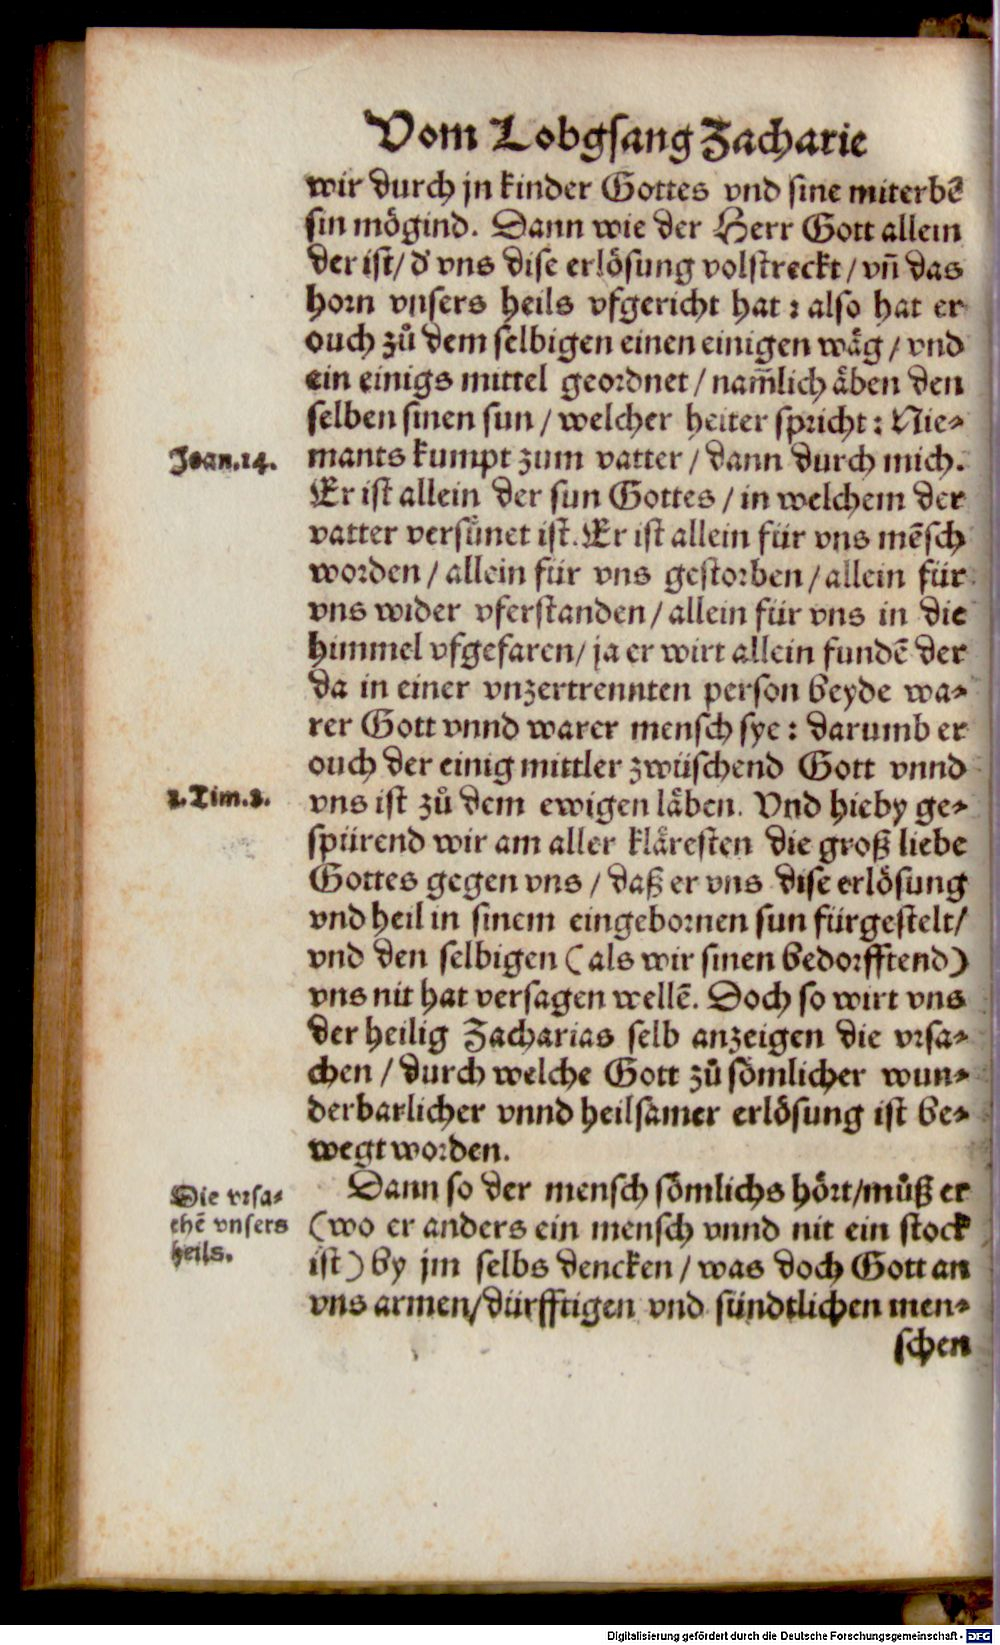 Vom Lobgsang Zacharie
wir durch jn kinder Gottes vnd sine miterbē
sin mögind. Dann wie der Herr Gott allein
der ist/ d' vns dise erlösung volstreckt / vñ das
horn vnsers heils vfgericht hat : also hat er
ouch zů dem selbigen einen einigen wäg / vnd
ein einigs mittel geordnet / nam̄lich äben den
selben sinen sun / welcher heiter spricht : Nie⸗
Joan.14.
mants kumpt zum vatter / dann durch mich.
Er ist allein der sun Gottes / in welchem der
vatter versünet ist. Er ist allein für vns mēsch
worden / allein für vns gestorben / allein für
vns wider vferstanden / allein für vns in die
himmel vfgefaren/ ja er wirt allein fundē der
da in einer vnzertrennten person beyde wa⸗
rer Gott vnnd warer mensch sye : darumb er
ouch der einig mittler zwüschend Gott vnnd
1.Tim.2.
vns ist zů dem ewigen läben. Vnd hieby ge⸗
spürend wir am aller kläresten die groß liebe
Gottes gegen vns / daß er vns dise erlösung
vnd heil in sinem eingebornen sun fürgestelt/
vnd den selbigen ( als wir sinen bedorfftend)
vns nit hat versagen wellē. Doch so wirt vns
der heilig Zacharias selb anzeigen die vrsa⸗
chen / durch welche Gott zů sömlicher wun⸗
derbarlicher vnnd heilsamer erlösung ist be⸗
wegt worden.
Die vrsa⸗
chē vnsers
heils.
Dann so der mensch sömlichs hört/můß er
(wo er anders ein mensch vnnd nit ein stock
ist) by jm selbs dencken / was doch Gott an
vns armen/dürfftigen vnd sündtlichen men⸗
schen
Digitalisierung gefördert durch die Deutsche Forschungsgemeinschaft - DFG